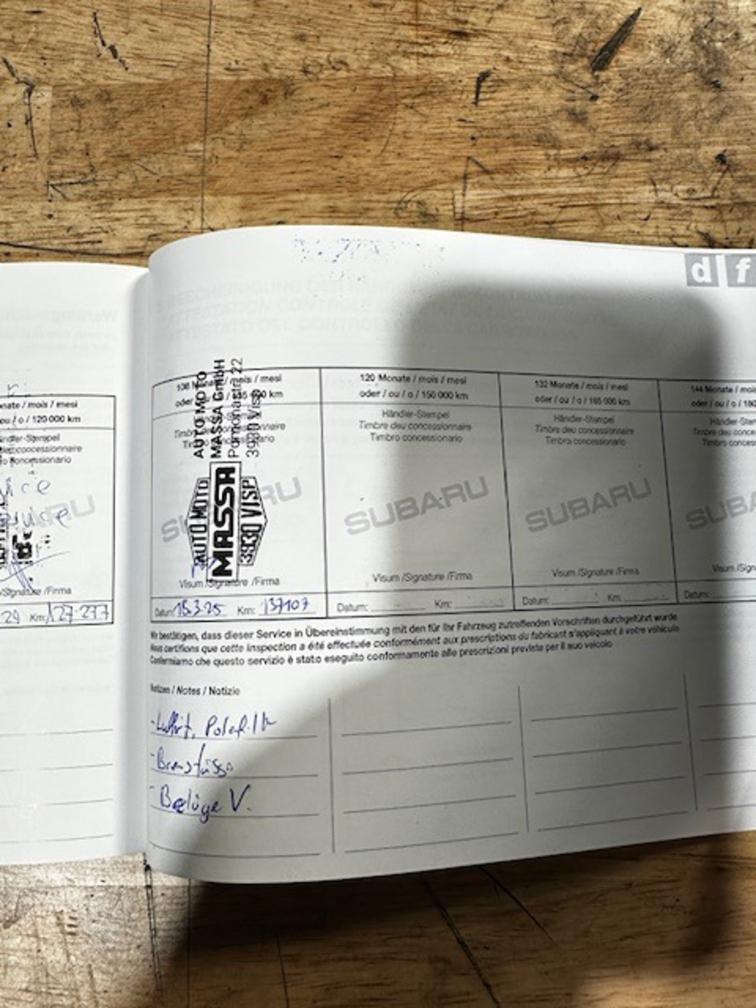 d f
nate / mois / mesi
ou / o / 120 000 km
Händler-Stempel
Timbre du concessionnaire
Timbro concessionario
/Signature /Firma
29 Km: 127.277
108 Monate / mois / mesi
oder / ou / o / 135 000 km
AUTO MOTO
MASSA GmbH
3930 Visp
AUTO MOTO
MASSA
3930 VISP
SUBARU
Visum /Signature /Firma
Datum: 18.3.25 Km: 137107
120 Monate / mois / mesi
oder / ou / o / 150 000 km
Händler-Stempel
Timbre deu concessionnaire
Timbro concessionario
SUBARU
Visum /Signature /Firma
Datum: Km:
132 Monate / mois / mesi
oder / ou / o / 165 000 km
Händler-Stempel
Timbre deu concessionnaire
Timbro concessionario
SUBARU
Visum /Signature /Firma
Datum: Km:
144 Monate / mois
oder / ou / o / 180
Händler-Stem
Timbre deu concess
Timbro concess
SUBA
Visum /Signa
Datum:
Wir bestätigen, dass dieser Service in Übereinstimmung mit den für Ihr Fahrzeug zutreffenden Vorschriften durchgeführt wurde
Nous certifions que cette inspection a été effectuée conformément aux prescriptions du fabricant s'appliquant à votre véhicule
Confermiamo che questo servizio è stato eseguito conformemente alle prescrizioni previste per il suo veicolo
Notizen / Notes / Notizie
- Luftfit, Polenfilt
- Bremsflüss
- Beläge V.